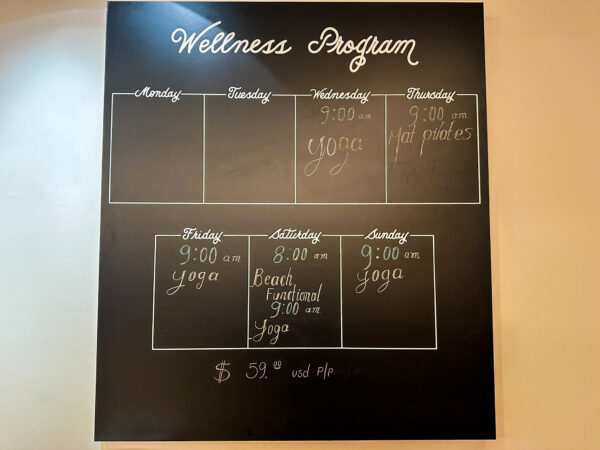 Wellness Program
Monday Tuesday Wednesday Thursday
9:00 am
yoga
9:00 am
Mat pilates
Friday Saturday Sunday
9:00 am
yoga
8:00 am
Beach
Functional
9:00 am
Yoga
9:00 am
yoga
$ 59.00 usd P/P